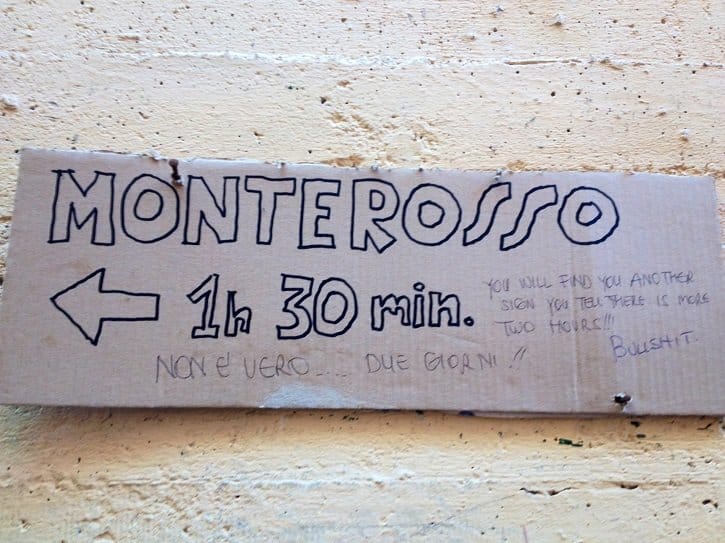 MONTEROSSO
1h 30 min.
YOU WILL FIND YOU ANOTHER
SIGN YOU TELL THERE IS MORE
TWO HOURS!!!
BULLSHIT.
NON É VERO.... DUE GIORNI!!